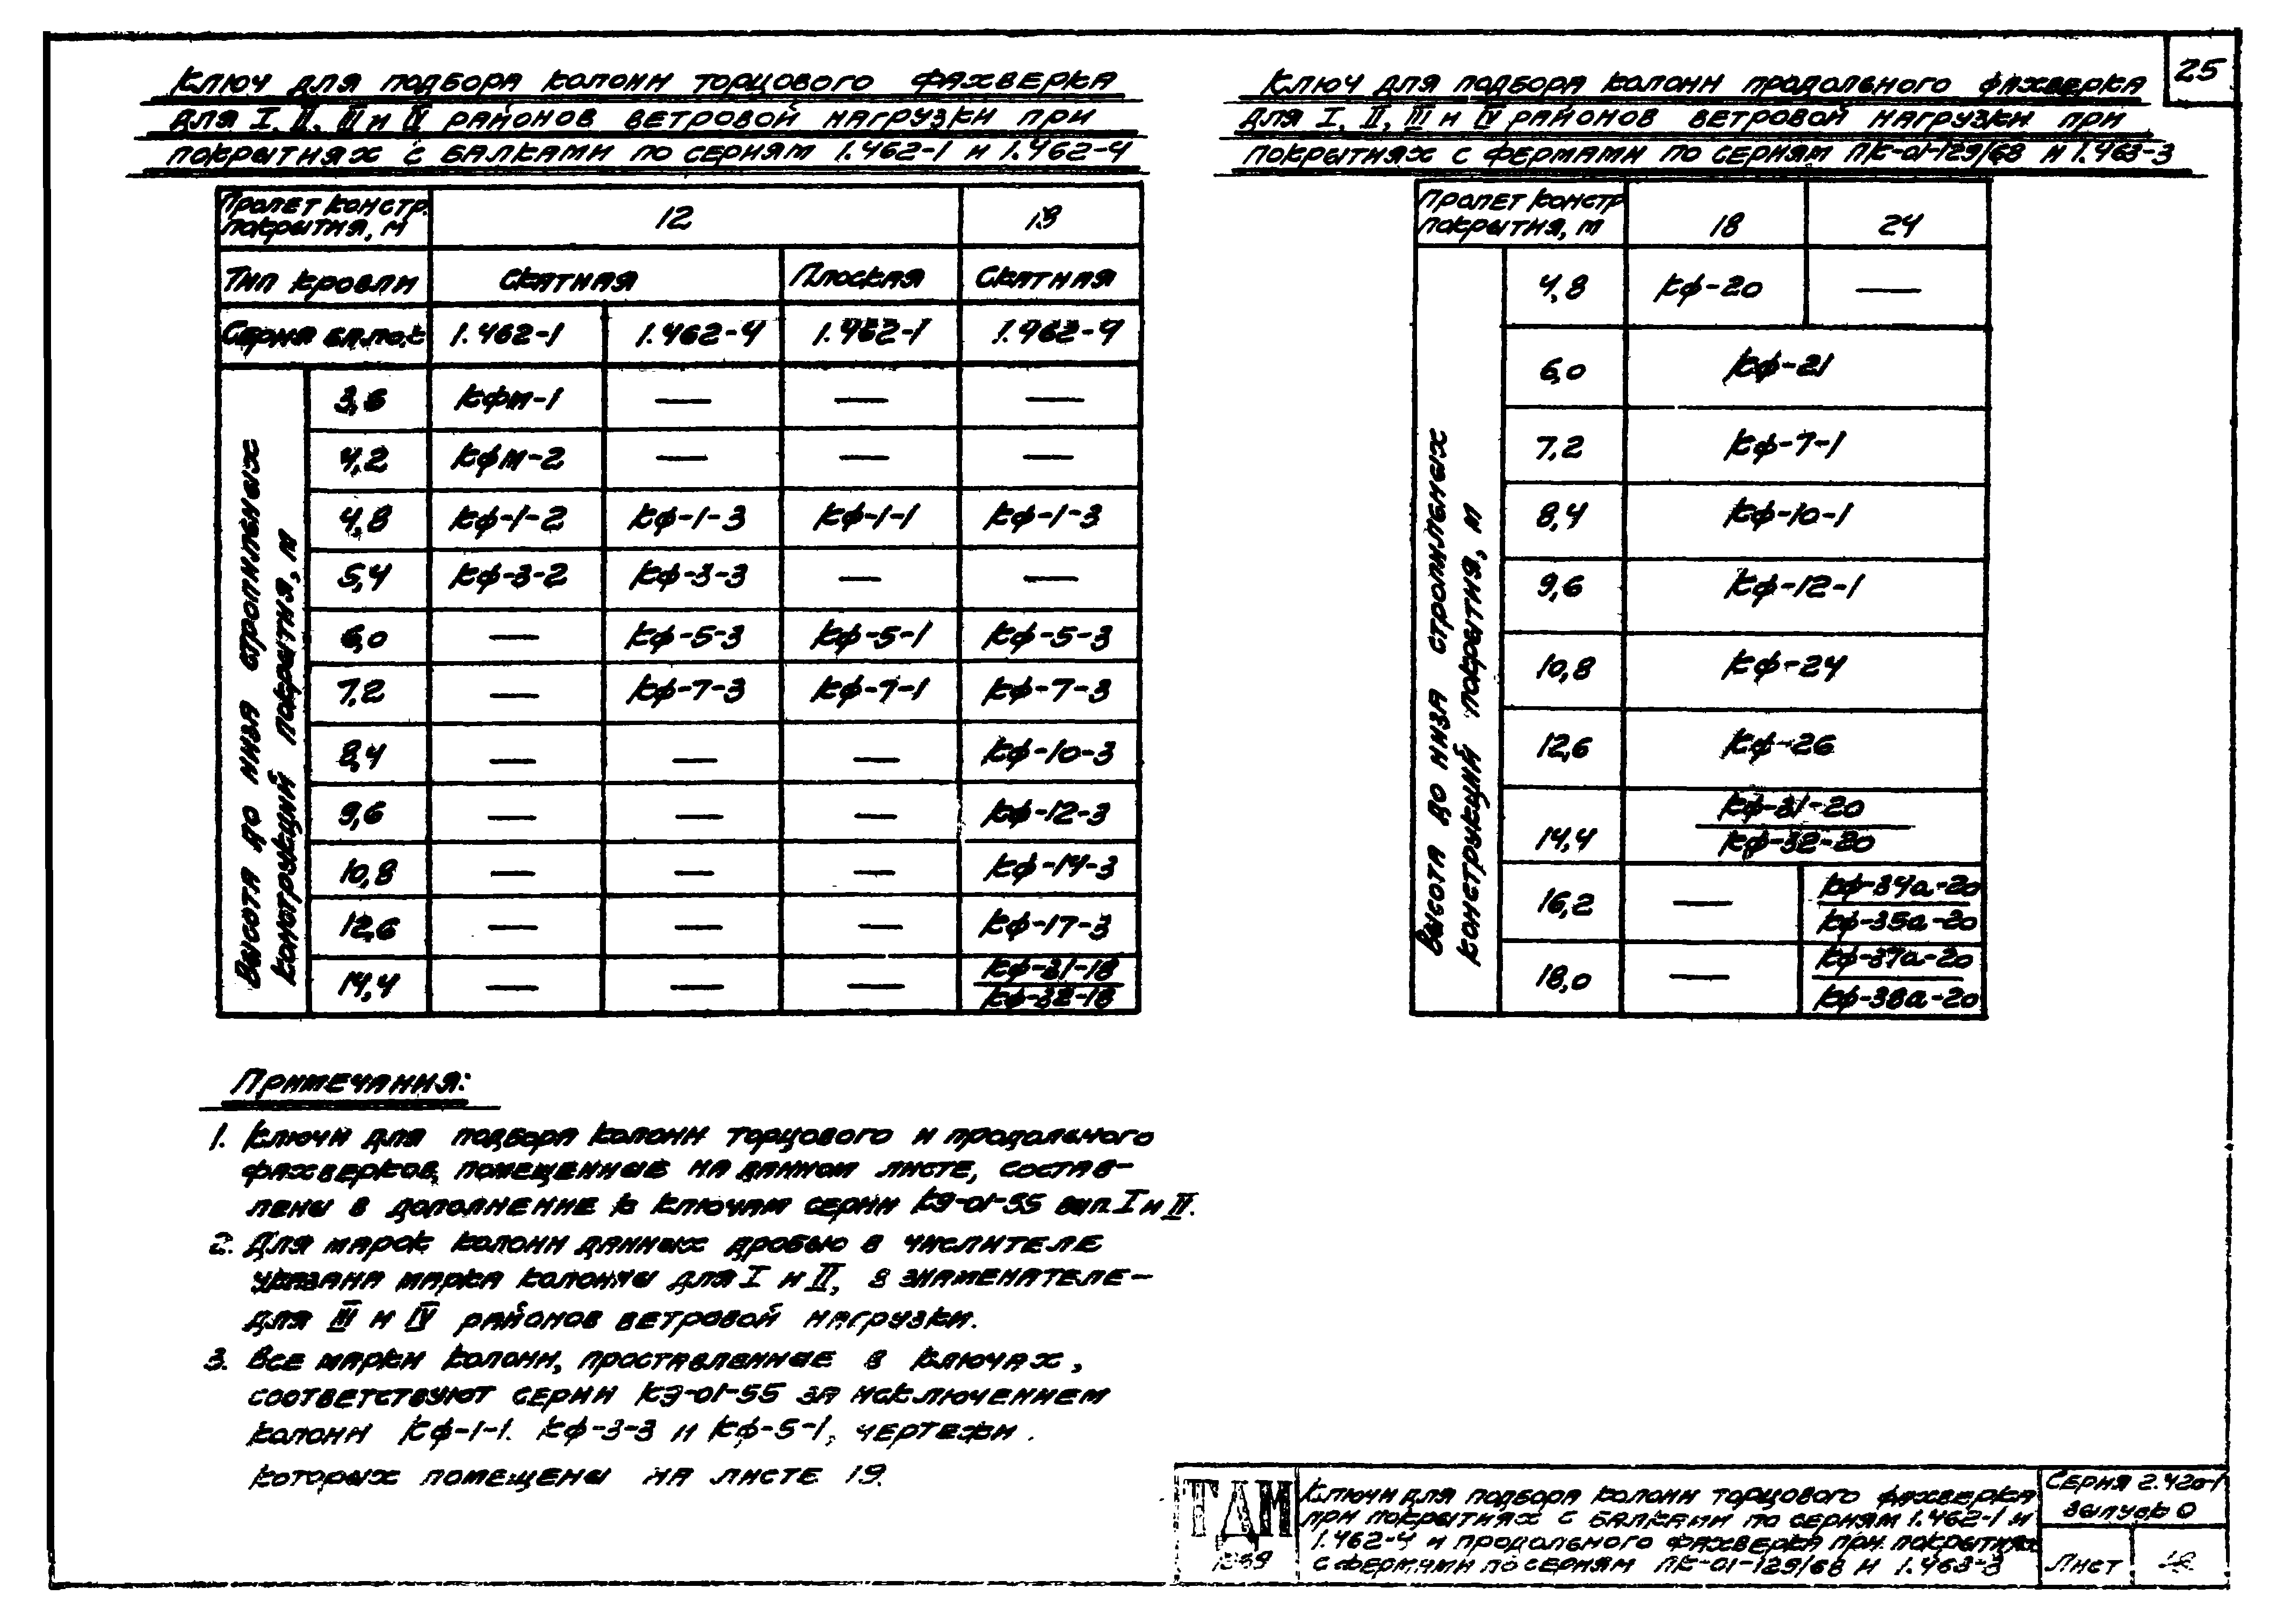 25
Ключ для подбора колонн торцового фахверка
для I, II, III и IV районов ветровой нагрузки при
покрытиях с балками по сериям 1.462-1 и 1.462-4
Пролет констр. покрытия, м | 12 | 18
Тип кровли | Скатная | Плоская | Скатная
Серия балок | 1.462-1 | 1.462-4 | 1.462-1 | 1.462-4
Высота до низа стропильных
конструкций покрытия, м
3,6 | КФМ-1 | — | — | —
4,2 | КФМ-2 | — | — | —
4,8 | КФ-1-2 | КФ-1-3 | КФ-1-1 | КФ-1-3
5,4 | КФ-3-2 | КФ-3-3 | — | —
6,0 | — | КФ-5-3 | КФ-5-1 | КФ-5-3
7,2 | — | КФ-7-3 | КФ-7-1 | КФ-7-3
8,4 | — | — | — | КФ-10-3
9,6 | — | — | — | КФ-12-3
10,8 | — | — | — | КФ-14-3
12,6 | — | — | — | КФ-17-3
14,4 | — | — | — | КФ-31-18
КФ-32-18
Ключ для подбора колонн продольного фахверка
для I, II, III и IV районов ветровой нагрузки при
покрытиях с фермами по сериям ПК-01-129/68 и 1.463-3
Пролет констр покрытия, м | 18 | 24
Высота до низа стропильных
конструкций покрытия, м
4,8 | КФ-20 | —
6,0 | КФ-21
7,2 | КФ-7-1
8,4 | КФ-10-1
9,6 | КФ-12-1
10,8 | КФ-24
12,6 | КФ-26
14,4 | КФ-31-20
КФ-32-20
16,2 | — | КФ-34а-20
КФ-35а-20
18,0 | — | КФ-37а-20
КФ-38а-20
Примечания:
1. Ключи для подбора колонн торцового и продольного
фахверков, помещенные на данном листе, состав-
лены в дополнение к ключам серии КЭ-01-55 вып. I и II.
2. Для марок колонн данных дробью в числителе
указана марка колонны для I и II, в знаменателе-
для III и IV районов ветровой нагрузки.
3. Все марки колонн, проставленные в ключах,
соответствуют серии КЭ-01-55 за исключением
колонн КФ-1-1. КФ-3-3 и КФ-5-1, чертежи
которых помещены на листе 19.
ТДМ
1969
Ключи для подбора колонн торцового фахверка
при покрытиях с балками по сериям 1.462-1 и
1.462-4 и продольного фахверка при покрытиях
с фермами по сериям ПК-01-129/68 и 1.463-3
Серия 2.420-1
выпуск 0
Лист